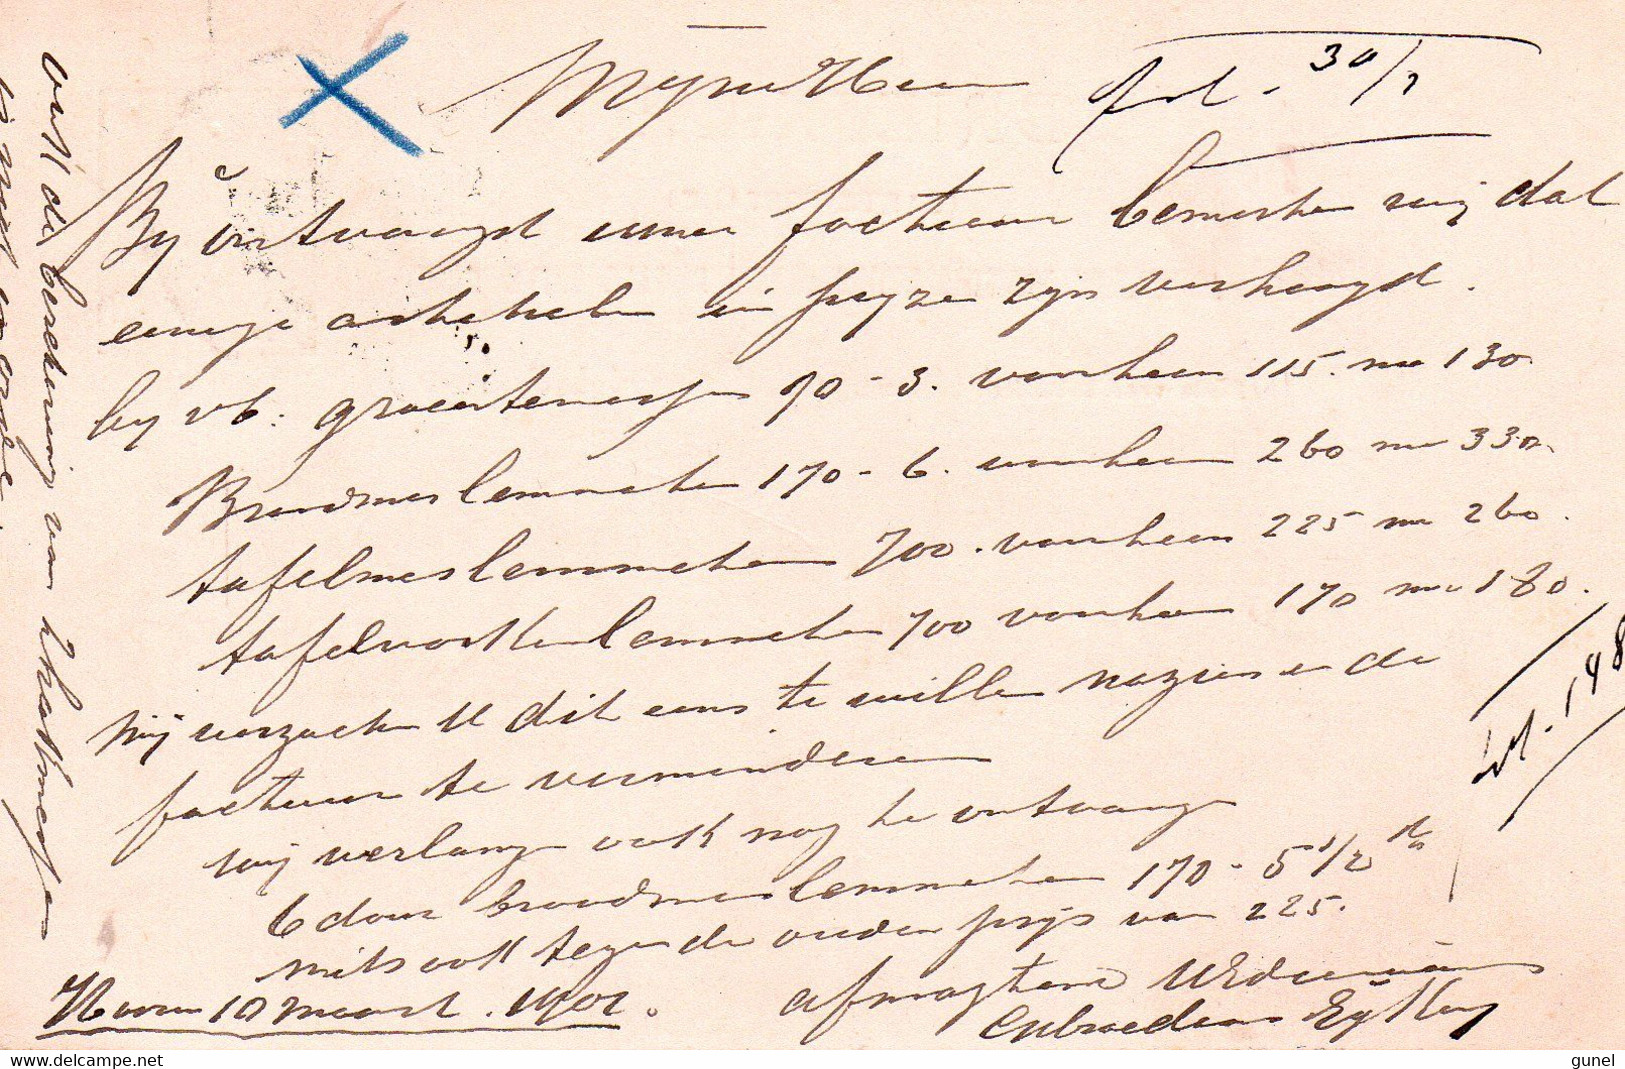 Mijne Heeren
fol. 30/1
By ontvangst uwer factuur bemerken wij dat
eenige artikelen in pryzen zijn verhoogd.
by vb: groentemesjes 90-3. voorheen 115. nu 130
Broodmeslemmeten 170-6. voorheen 260 nu 330.
tafelmeslemmeten 700. voorheen 225 nu 260.
tafelvorklemmeten 700 voorheen 170 nu 180.
Wij verzoeken U dit eens te willen nazien en de
factuur te verminderen
wij verlangen ook nog te ontvangen
6 doz broodmeslemmeten 170-5 1/2
mits ook tegen de ouden prijs van 225.
Hoorn 10 maart. 1902.
afwagtend UEd dienaars
Gebroeders
fol. 148
ook de berekening van hakmesjes
is niet in orde.
delcampe.net
gunel